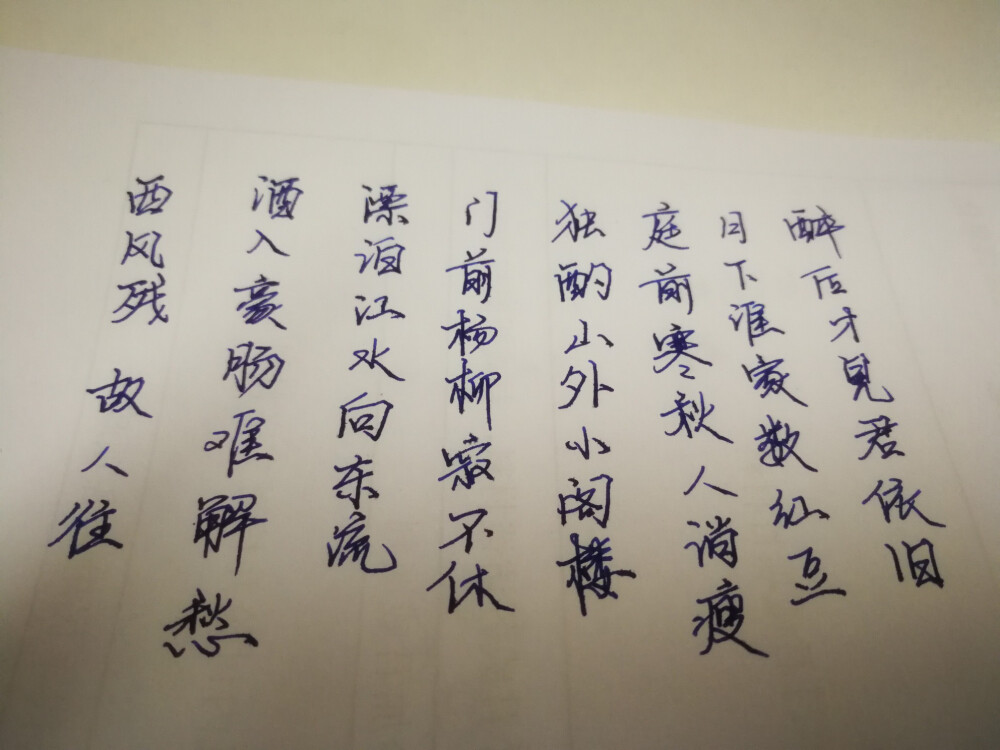 西风残 故人往
酒入豪肠难解愁
漂泊江水向东流
门前杨柳寂不休
独酌山外小阁楼
庭前寒秋人消瘦
月下谁家数红豆
醉后才見君依旧